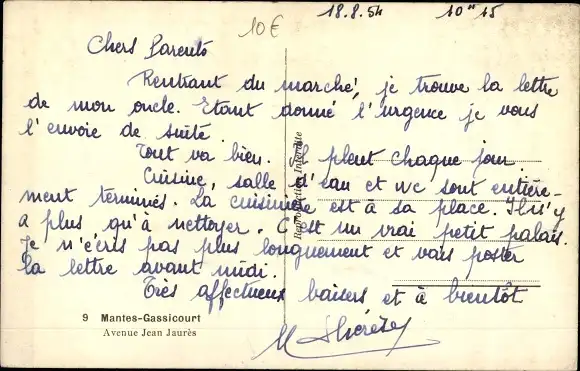 10€ 18.8.54 10H15
Chers Parents
Rentrant du marché, je trouve la lettre
de mon oncle. Etant donné l'urgence je vous
l'envoie de suite.
Tout va bien. Il pleut chaque jour.
Cuisine, salle d'eau et wc sont entière-
ment terminés. La cuisinière est à sa place. Il n'y
a plus qu'à nettoyer. C'est un vrai petit palais.
Je n'écris pas plus longuement et vais poster
la lettre avant midi.
Très affectueux baisers et à bientôt
M Thérèse
Reproduction Interdite
9 Mantes-Gassicourt
Avenue Jean Jaurès